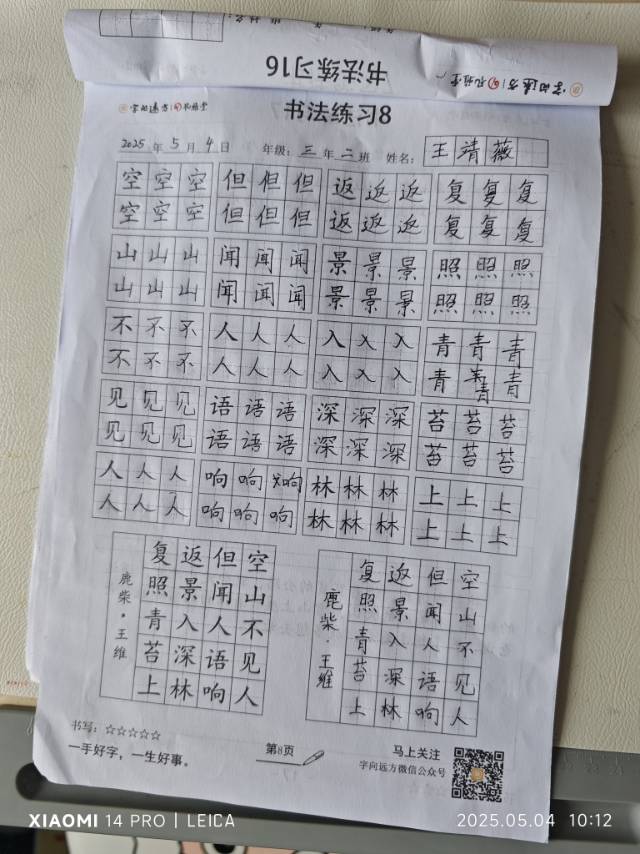 书法练习16
字向远方
书法练习8
2025年5月4日 年级:三年二班 姓名:王靖薇
空空空 但但但 返返返 复复复
空空空 但但但 返返返 复复复
山山山 闻闻闻 景景景 照照照
山山山 闻闻闻 景景景 照照照
不不不 人人人 入入入 青青青
不不不 人人人 入入入 青青青
见见见 语语语 深深深 苔苔苔
见见见 语语语 深深深 苔苔苔
人人人 响响响 林林林 上上上
人人人 响响响 林林林 上上上
空山不见人
但闻人语响
返景入深林
复照青苔上
鹿柴·王维
空山不见人
但闻人语响
返景入深林
复照青苔上
鹿柴·王维
书写:☆☆☆☆☆
一手好字,一生好事。
第8页
马上关注
字向远方微信公众号
XIAOMI 14 PRO | LEICA
2025.05.04 10:12